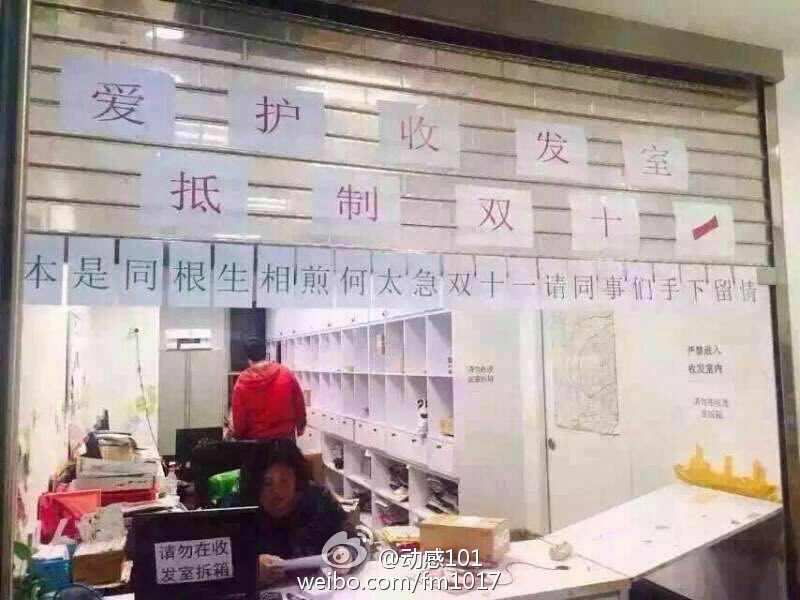 爱护收发室
抵制双十一
本是同根生相煎何太急双十一请同事们手下留情
严禁进入
收发室内
请勿在收发
室拆箱
请勿在收
发室拆箱
@动感101
weibo.com/fm1017